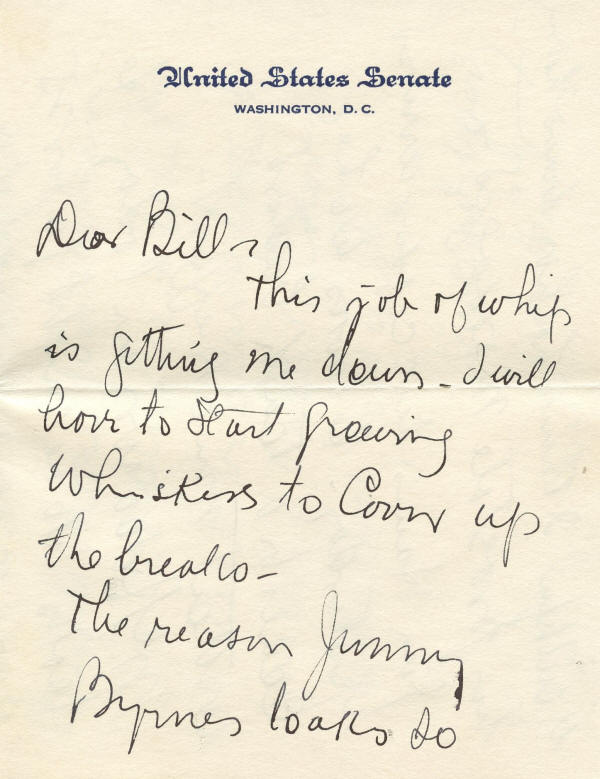 United States Senate
WASHINGTON, D. C.
Dear Bill -
This job of whip
is getting me down - I will
have to start growing
whiskers to cover up
the breaks -
The reason Jimmy
Byrnes looks so